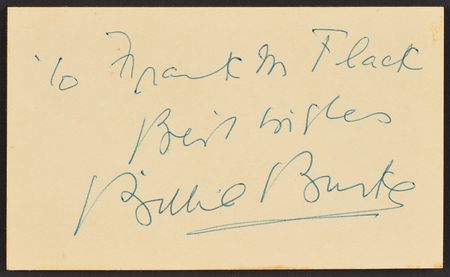 To Frank M Flack
Best wishes
Billie Burke